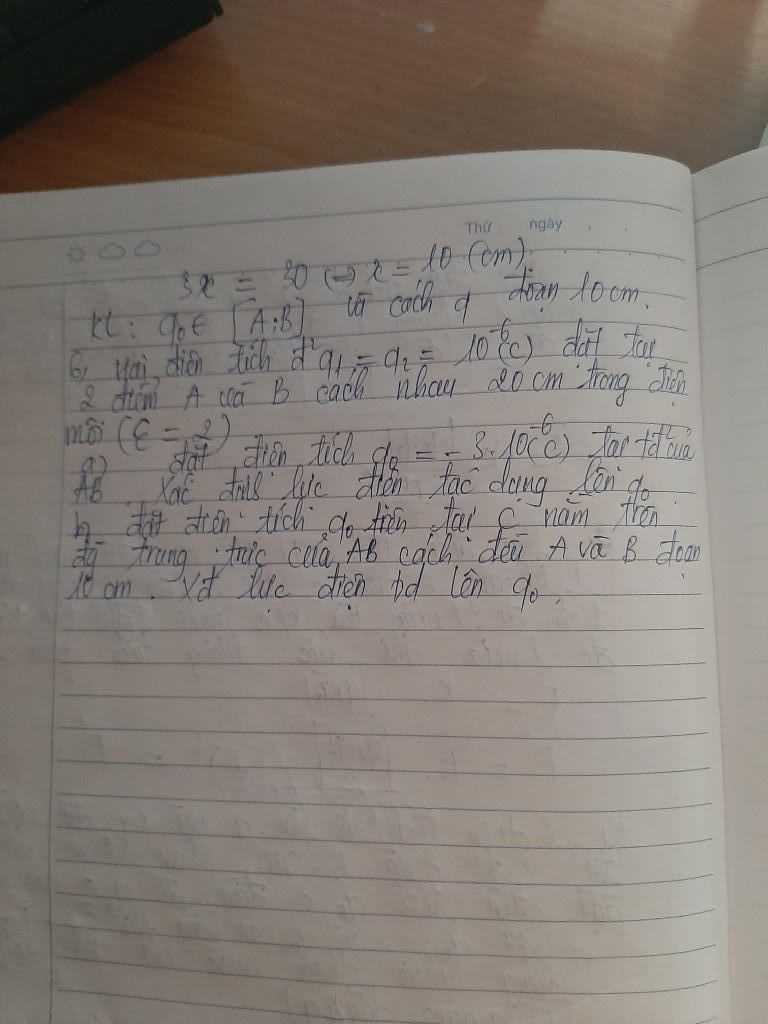 Thứ ngày
3x = 30 (=) x = 10 (cm).
KL: q₀ ∈ [A;B] và cách q đoạn 10cm.
6, Hai điện tích đ² q₁ = q₂ = 10⁻⁶(C) đặt tại
2 điểm A và B cách nhau 20cm trong điện
môi (ε = 2)
a) đặt điện tích q₀ = - 3.10⁻⁶(C) tại tđ² của
AB. Xác định lực điện tác dụng lên q₀
b, đặt điện tích q₀ trên tại C nằm trên
đg trung trực của AB cách đều A và B đoạn
10 cm. Xđ lực điện td lên q₀.